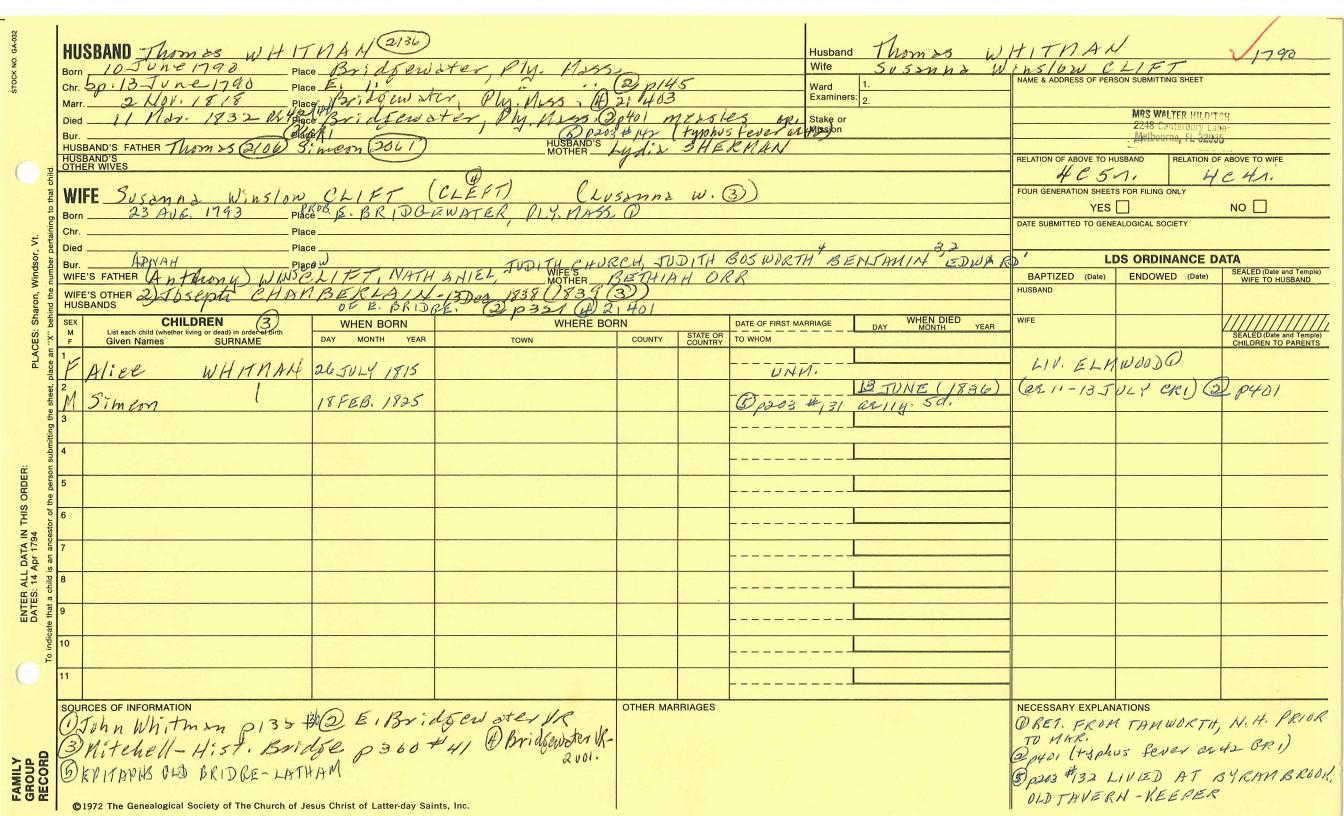 STOCK NO. GA-032
HUSBAND Thomas WHITMAN (2136)
Born 10 June 1790 Place Bridgewater, Ply. Mass
Chr. bp. 13 June 1790 Place E. " : " : " ② p145
Marr. 2 Nov. 1818 Place Bridgewater, Ply. Mass ④ 2:403
Died 11 Mar. 1832 Place Bridgewater, Ply. Mass. ② p401 measles
Bur. Place ⑤ p203 #142 (typhus fever
HUSBAND'S FATHER Thomas (2106) Simeon (2061) HUSBAND'S MOTHER Lydia SHERMAN
HUSBAND'S OTHER WIVES
Husband Thomas WHITMAN 1790
Wife Susanna Winslow CLIFT
Ward Examiners: 1.
2.
Stake or Mission
NAME & ADDRESS OF PERSON SUBMITTING SHEET
MRS WALTER HILDITCH
2248 Canterbury Lane
Melbourne, FL 32935
RELATION OF ABOVE TO HUSBAND RELATION OF ABOVE TO WIFE
4C5r. 4C4r.
FOUR GENERATION SHEETS FOR FILING ONLY
YES NO
DATE SUBMITTED TO GENEALOGICAL SOCIETY
WIFE Susanna Winslow CLIFT (CLEFT) ④ (Lusanna W. ③)
Born 23 AUG. 1793 Place PROB. E. BRIDGEWATER, PLY. MASS ①
Chr. Place
Died Place
Bur. Place
WIFE'S FATHER (Anthony) WINS CLIFT, NATHANIEL, JUDITH CHURCH, JUDITH BOSWORTH BENJAMIN EDWARD
WIFE'S MOTHER BETHIAH ORR
WIFE'S OTHER HUSBANDS 2) Joseph CHAMBERLAIN - 13 Dec 1838 (1839 ③)
OF E. BRIDGE. ② p321 ④ 2:401
LDS ORDINANCE DATA
BAPTIZED (Date) ENDOWED (Date) SEALED (Date and Temple) WIFE TO HUSBAND
HUSBAND
WIFE
SEALED (Date and Temple) CHILDREN TO PARENTS
SEX M F
CHILDREN ③
List each child (whether living or dead) in order of birth
Given Names SURNAME
WHEN BORN
DAY MONTH YEAR
WHERE BORN
TOWN COUNTY STATE OR COUNTRY
DATE OF FIRST MARRIAGE
TO WHOM
WHEN DIED
DAY MONTH YEAR
1 F Alice WHITMAN 26 JULY 1815 UNM. LIV. ELMWOOD ①
2 M Simeon 18 FEB. 1825 13 JUNE (1836) (ae 11 - 13 JULY CR1) ② p401
⑤ p203 #131 ae 11y. 5d.
3
4
5
6
7
8
9
10
11
SOURCES OF INFORMATION
① John Whitman p132 ② E. Bridgewater VR
③ Mitchell - Hist. Bridge p360 #41 ④ Bridgewater VR - 2 vol.
⑤ EPITAPHS OLD BRIDGE - LATHAM
OTHER MARRIAGES
NECESSARY EXPLANATIONS
① RET. FROM TAMWORTH, N.H. PRIOR
TO MAR.
② p401 (typhus fever ae 42 GR1)
⑤ p203 #132 LIVED AT BYRAM BROOK,
OLD TAVERN-KEEPER
©1972 The Genealogical Society of The Church of Jesus Christ of Latter-day Saints, Inc.
FAMILY GROUP RECORD
ENTER ALL DATA IN THIS ORDER:
DATES: 14 Apr 1794
PLACES: Sharon, Windsor, Vt.
To indicate that a child is an ancestor of the person submitting the sheet, place an "X" behind the number pertaining to that child.